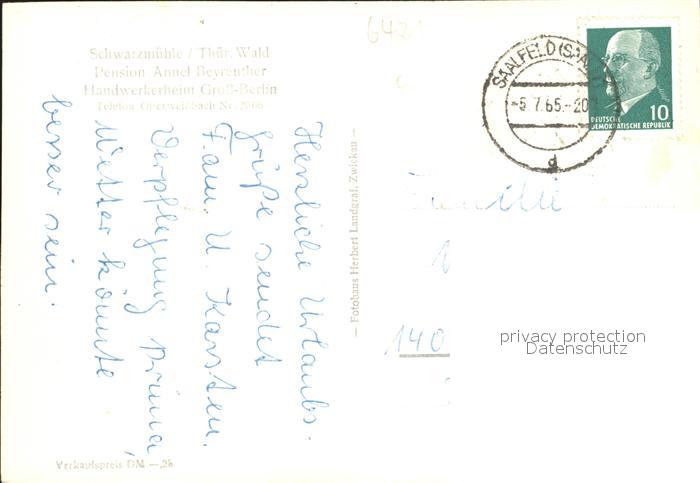 6421
Schwarzmühle / Thür. Wald
Pension Annel Beyreuther
Handwerkerheim Groß-Berlin
Telefon Oberweißbach Nr. 2066
Herzliche Urlaubs-
grüße sendet
Fam. U. Karsten.
Verpflegung prima,
Wetter könnte
besser sein.
Verkaufspreis DM —,28
— Fotohaus Herbert Landgraf, Zwickau —
SAALFELD (SAALE)
-5.7.65.-20
d
10
DEUTSCHE
DEMOKRATISCHE REPUBLIK
Familie
140
privacy protection
Datenschutz